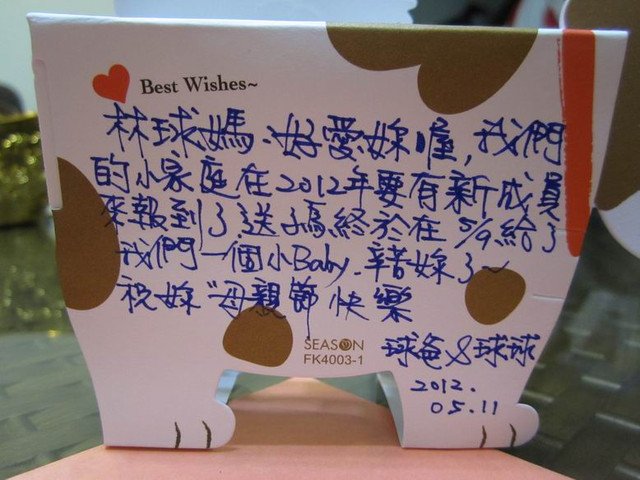 Best Wishes~
林球媽,好愛妳喔,我們
的小家庭在2012年要有新成員
來報到了,送子鳥終於在5/9給了
我們一個小Baby.辛苦妳了~
祝妳"母親節快樂
SEASON
FK4003-1
球爸&球球
2012.
05.11